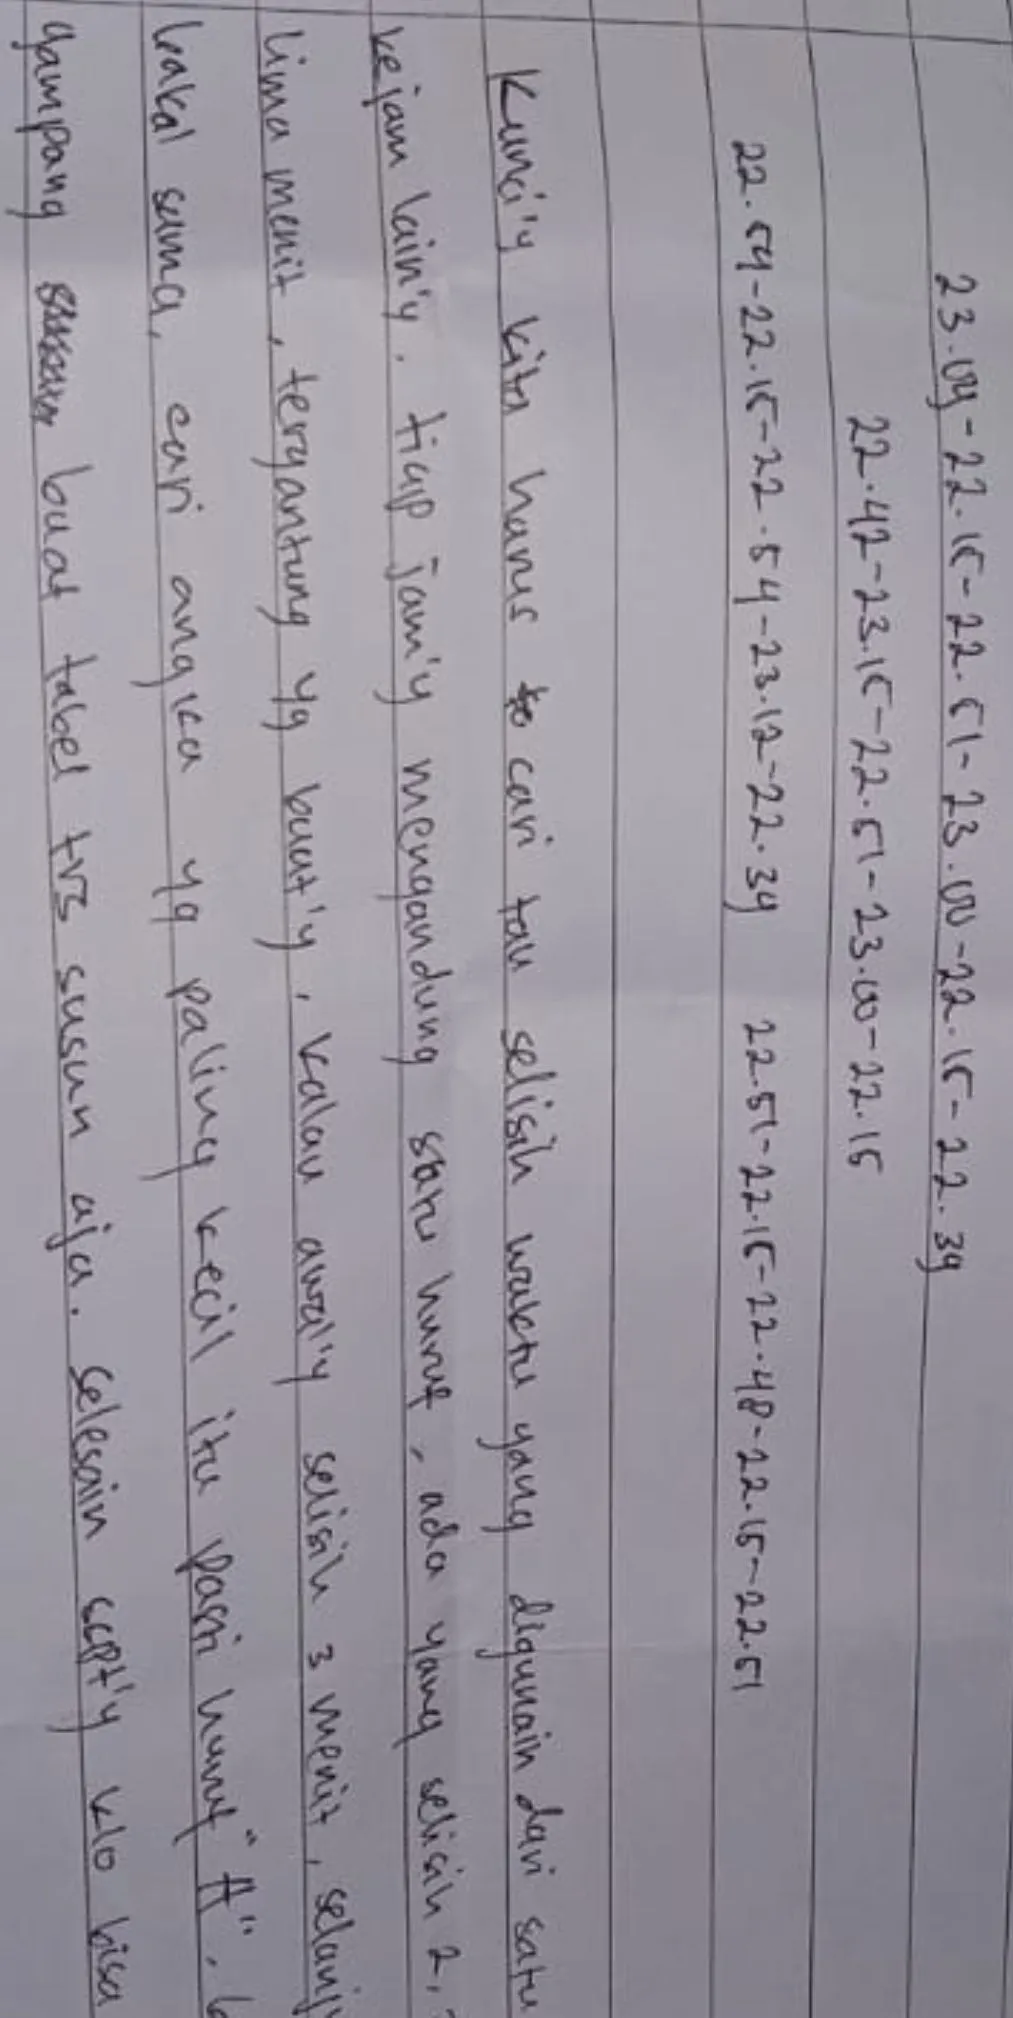 23.09-22.15-22.51-23.00-22.15-22.39
22.42-23.15-22.51-23.00-22.15
22.54-22.15-22.54-23.12-22.39 22.51-22.15-22.48-22.15-22.51
Kunci'y kita harus cari tau selisih waktu yang digunain dari satu
kejam lain'y. tiap jam'y mengandung satu huruf, ada yang selisih 2,
lima menit, tergantung yg buat'y, kalau awal'y selisih 3 menit, selanj
bakal sama, cari angka yg paling kecil itu pasti huruf "A". b
gampang buat tabel trs susun aja. selesain cept'y klo bisa